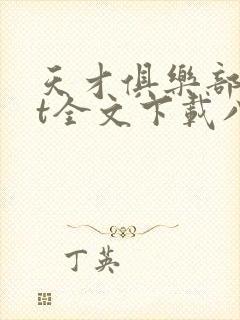 天才俱樂部
t全文下載
丁英